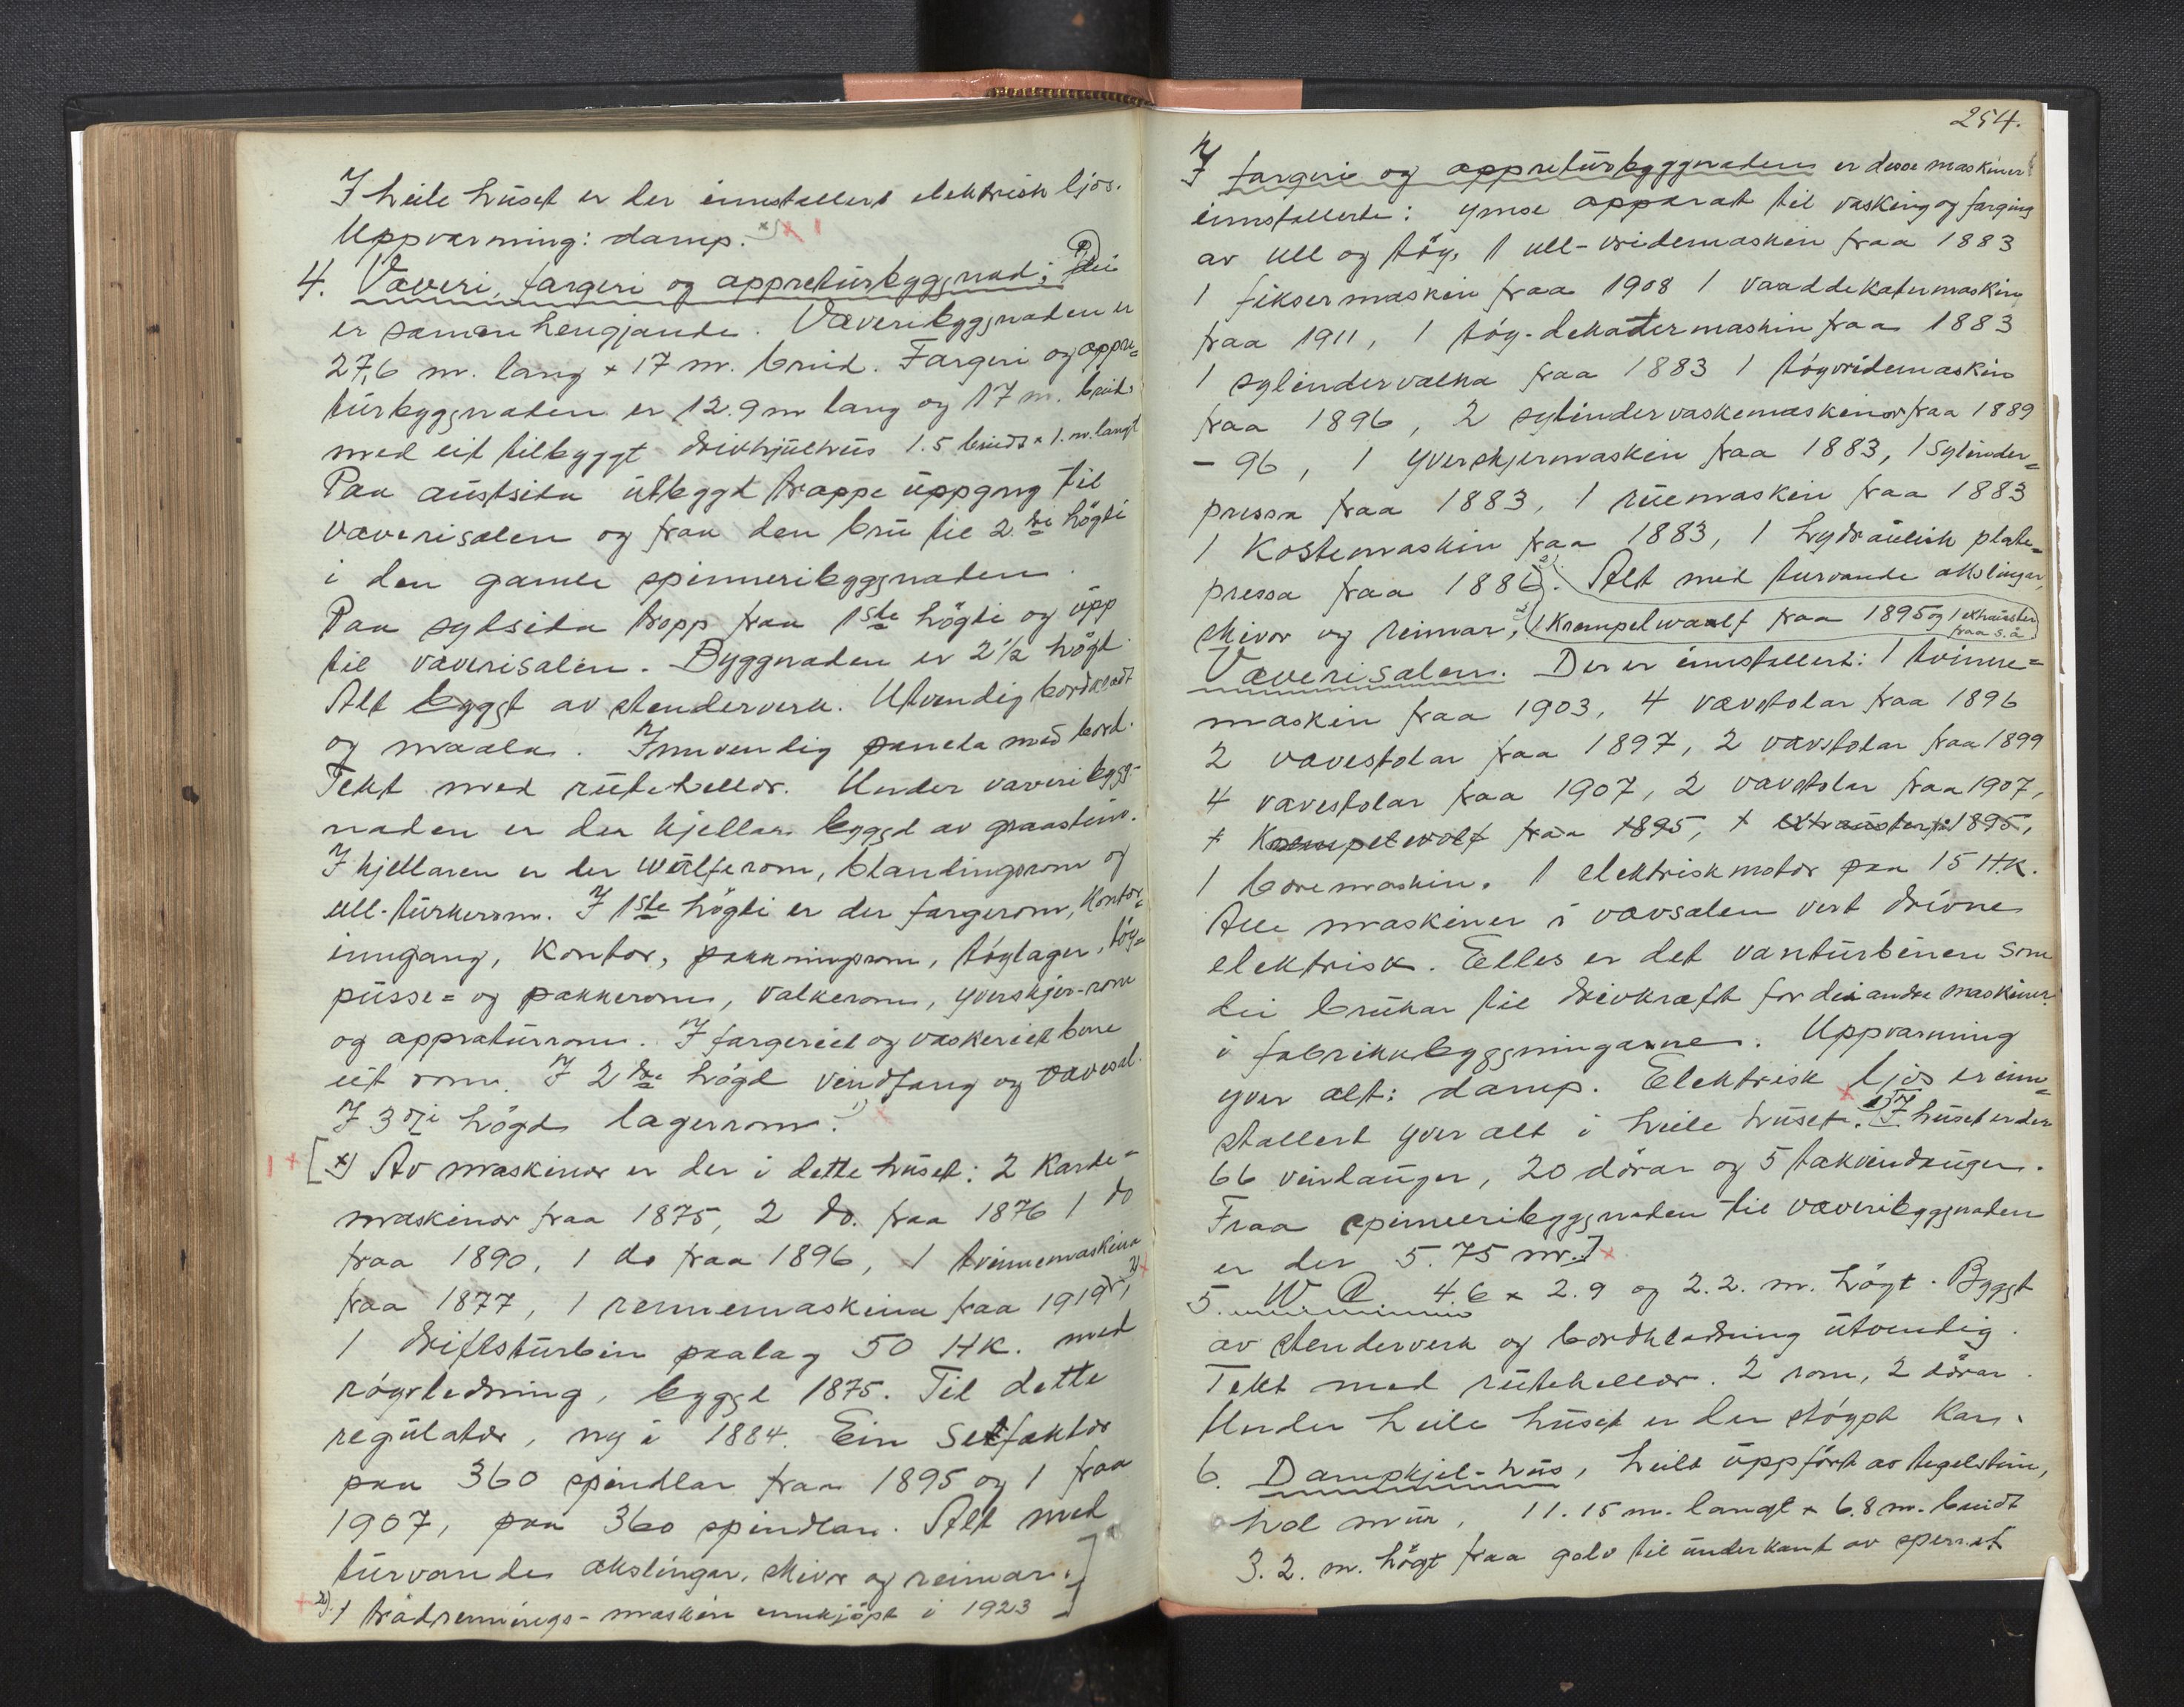 I heile huset er der innstallert elektrisk ljos.
Uppvarming: damp. x)
4. Væveri, fargeri og appreturbyggnad; Dei
er samanhengjande. Væveribyggnaden er
27,6 m. lang x 17 m. breid. Fargeri og appre=
turbyggnaden er 12.9 m lang og 17 m. breid
med eit tilbyggt drivhjulhus 1.5 breidt x 1. m. langt
Paa austsida utbyggt trappe uppgang til
væverisalen og fraa den bru til 2dre högdi
i den gamle spinneribyggnaden.
Paa sydsida trapp fraa 1ste högdi og upp
til væverisalen. Byggnaden er 2 1/2 högd
Alt byggt av stenderverk. Utvendig bordklædt
og maala. Innvendig panela med bord.
Tekt med rutehellor. Under væveribygg-
naden er der kjellar byggd av graastein.
I kjellaren er der wolferom, blandingsrom og
ull-turkerom. I 1ste högdi er der fargerom, Kontor=
inngang, Kontor, pakningsrom, töylager, töy=
pusse= og pakkerom, valkerom, yverskjer-rom
og appraturrom. I fargeriet og vaskeriet bere
eit rom. I 2dre högd vindfang og vævesal.
I 3dji högd lagerrom. 1)
[x) Av maskinor er der i dette huset: 2 Karde=
maskinor fraa 1875, 2 do. fraa 1876 1 do
fraa 1890, 1 do fraa 1896, 1 tvinnemaskina
fraa 1877, 1 rennemaskina fraa 1919, 2)
1 driftsturbin paalag 50 HK. med
röyrledning, byggd 1875. Til dette
regulator, ny i 1884. Ein Selfaktor
paa 360 spindlar fraa 1895 og 1 fraa
1907, paa 360 spindlar. Alt med
turvande akslingar, skivor og reimar.]
2). 1 trådrennings-maskin innkjöpt i 1923
254.
I fargeri og appreturbyggnaden er desse maskiner
innstallerte: ymse apparat til vasking og farging
av ull og töy, 1 ull-vridemaskin fraa 1883
1 fiksermaskin fraa 1908 1 vaaddekatermaskin
fraa 1911, 1 töy-dekatermaskin fraa 1883
1 sylindervalka fraa 1883 1 töyvridemaskin
fraa 1896, 2 sylindervaskemaskinor fraa 1889
- 96, 1 yverskjermaskin fraa 1883, 1 Sylinder=
pressa fraa 1883, 1 ruemaskin fraa 1883
1 Kostemaskin fraa 1883, 1 hydraulisk plate=
pressa fraa 1886. Alt med turvande akslingar,
skivor og reimar, (1 Krempelwolf fraa 1895 og 1 exhauster
fraa s.å.)
Væverisalen. Der er innstallert: 1 tvinne=
maskin fraa 1903, 4 vævstolar fraa 1896
2 vævestolar fraa 1897, 2 vævstolar fraa 1899
4 vævestolar fraa 1907, 2 vævstolar fraa 1907,
1 Krempelwolf fraa 1895, 1 exhauster fr. 1895,
1 boremaskin. 1 elektrisk motor paa 15 HK.
Alle maskiner i vævsalen vert drivne
elektrisk. Elles er det vanturbinen som
dei brukar til drivkraft for dei andre maskiner
i fabrikkbyggningarne. Uppvarming
yver alt: damp. Elektrisk ljos er inn=
stallert yver alt i heile huset. 1) I huset er der
66 vindauger, 20 dörar og 5 takvindauger.
Fraa spinneribyggnaden til væveribyggnaden
er der 5.75 m.]
5. W C 4.6 x 2.9 og 2.2. m. högt. Byggt
av stenderverk og bordklædning utvendig.
Tekt med rutehellor. 2 rom, 2 dörar.
Under heile huset er der stöypt Kar.
6. Dampkjel-hus, heilt uppfört av tegelstein,
hol mur, 11.15 m. langt x 6.8 m. breidt
3.2. m. högt fraa golv til underkant av sperret